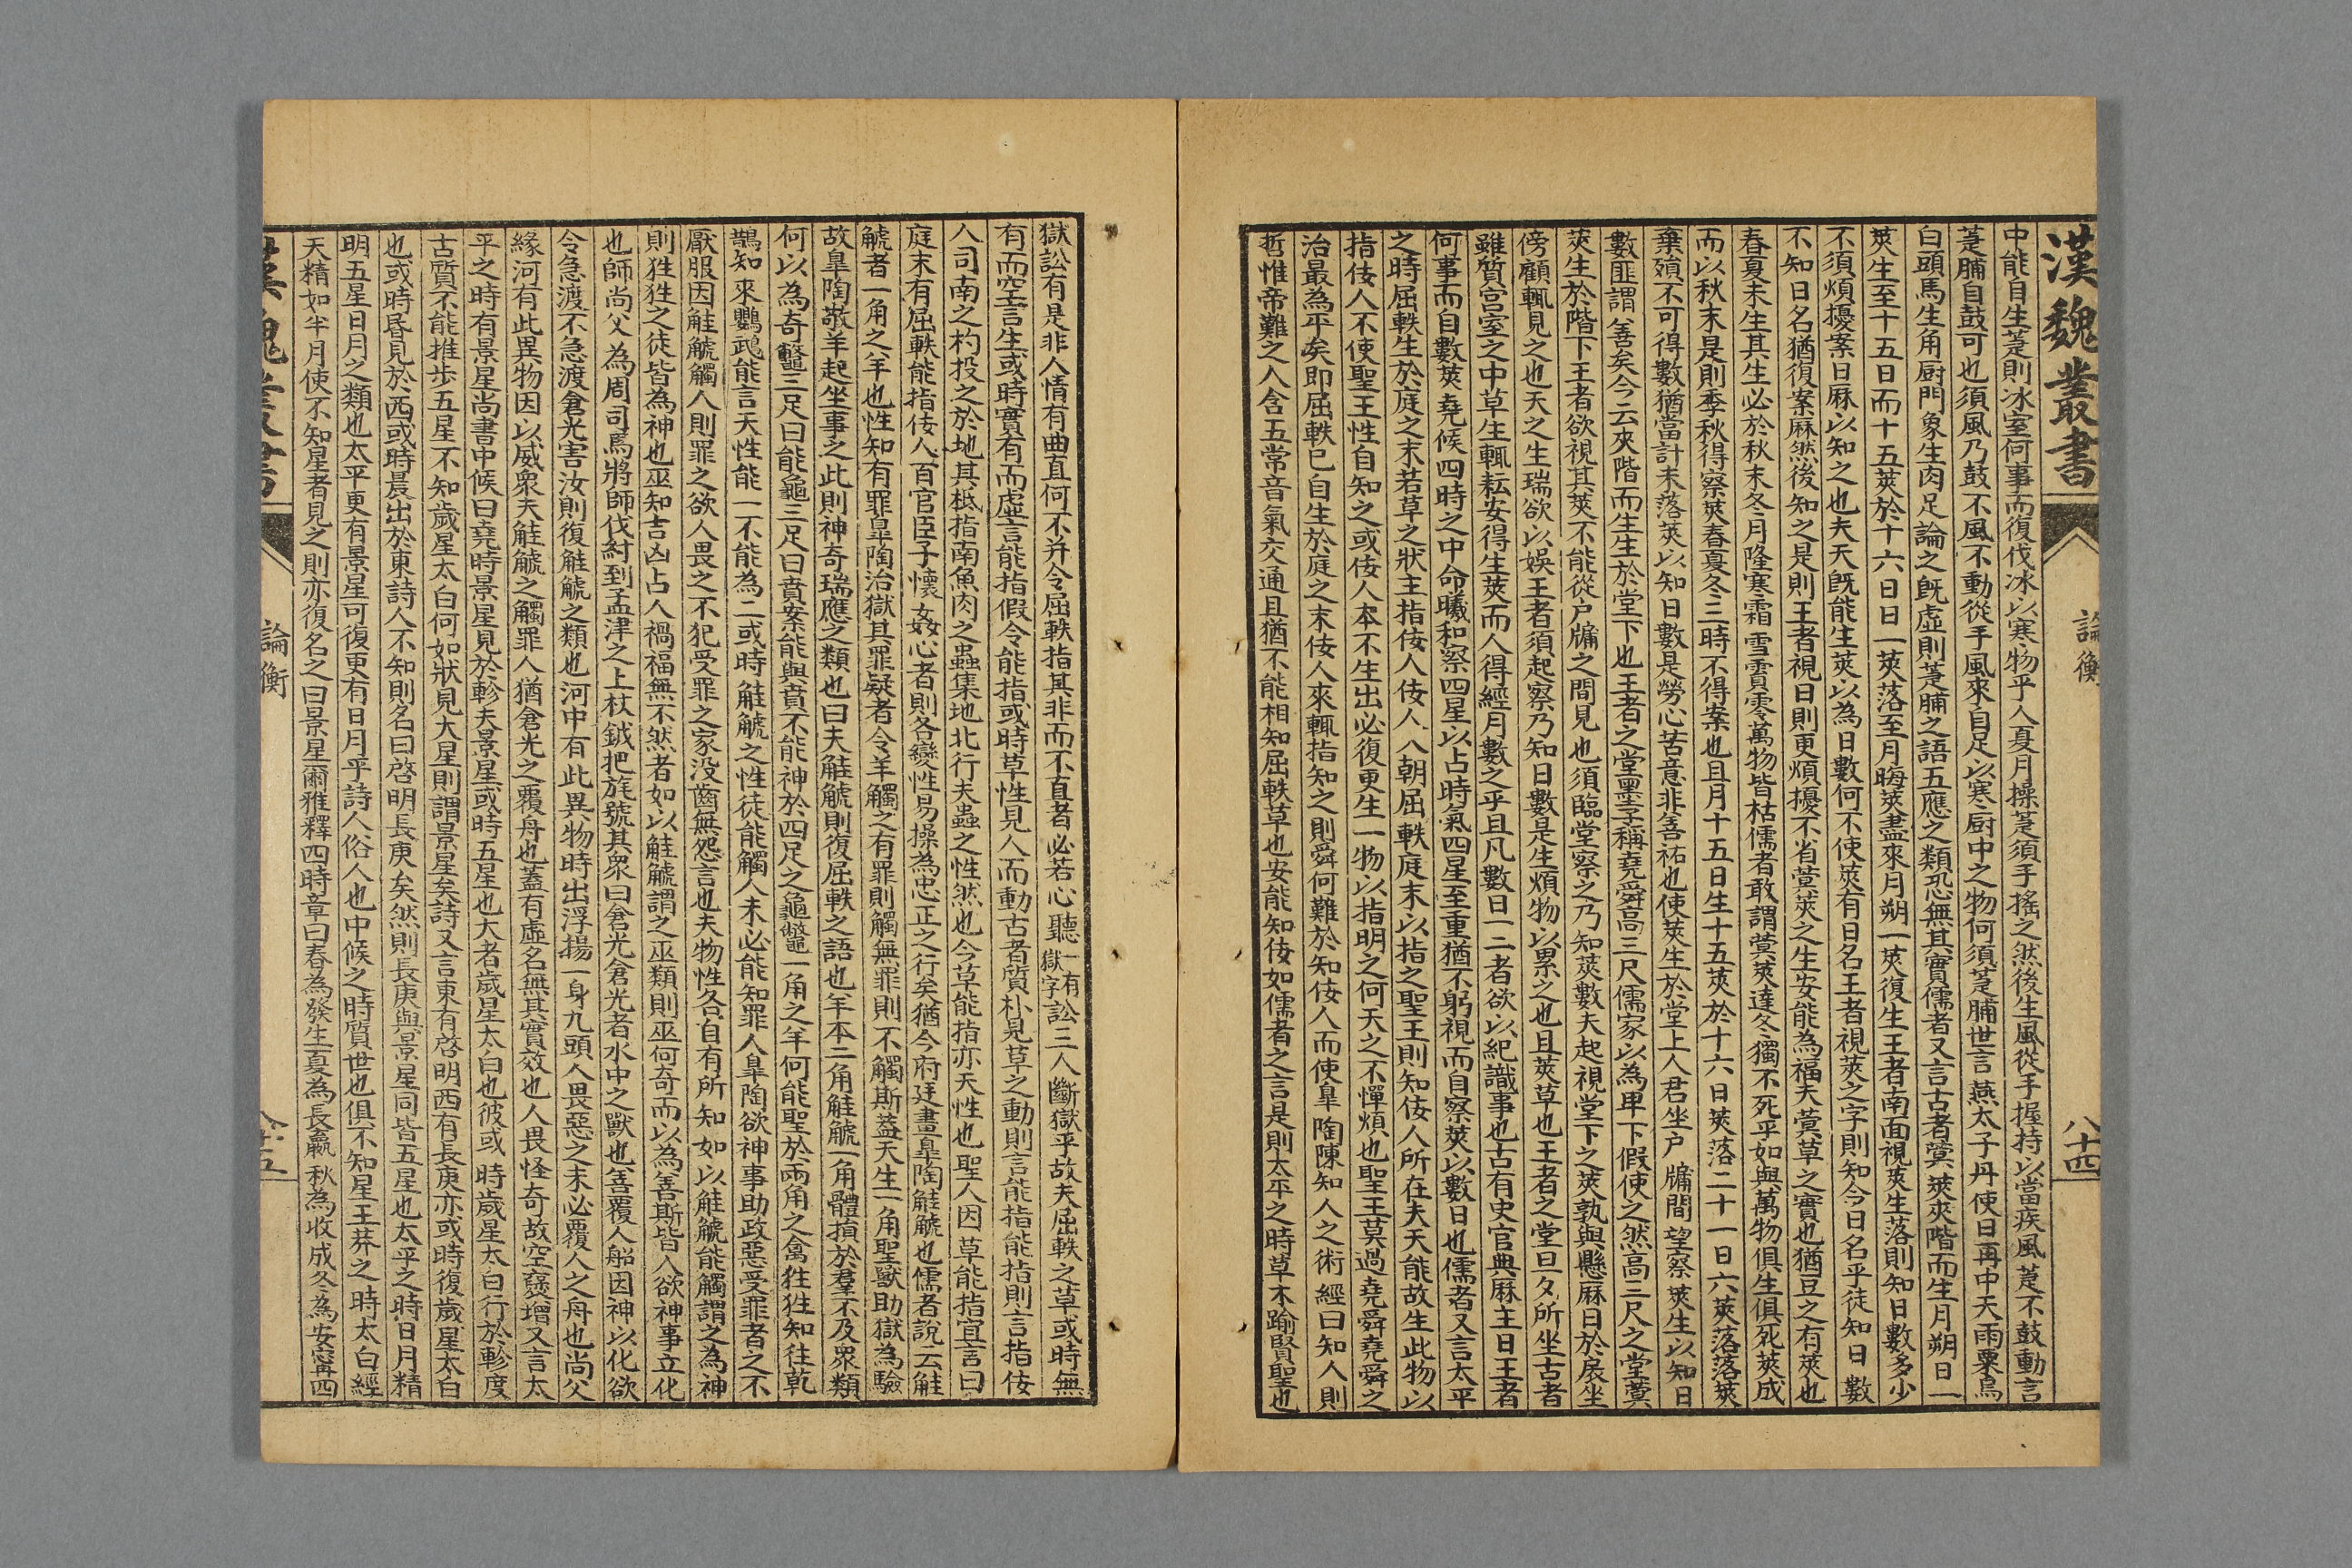 漢魏叢書
論衡
八十四
中能自生萐則冰室何事而復伐冰以寒物乎人夏月操萐須手搖之然後生風從手握持以當疾風萐不鼓動言
萐脯自鼓可也須風乃鼓不風不動從手風來自足以寒厨中之物何須萐脯世言燕太子丹使日再中天雨粟烏
白頭馬生角厨門象生肉足論之既虛則萐脯之語五應之類恐無其實儒者又言古者蓂莢夾階而生月朔日一
莢生至十五日而十五莢於十六日日一莢落至月晦莢盡來月朔一莢復生王者南面視莢生落則知日數多少
不須煩擾案日厤以知之也夫天既能生莢以為日數何不使莢有日名王者視莢之字則知今日名乎徒知日數
不知日名猶復案厤然後知之是則王者視日則更煩擾不省蓂莢之生安能為福夫蓂草之實也猶豆之有莢也
春夏未生其生必於秋末冬月隆寒霜雪霣零萬物皆枯儒者敢謂蓂莢達冬獨不死乎如與萬物俱生俱死莢成
而以秋末是則季秋得察莢春夏冬三時不得案也且月十五日生十五莢於十六日莢落二十一日六莢落落莢
棄殞不可得數猶當計未落莢以知日數是勞心苦意非善祐也使莢生於堂上人君坐户牖間望察莢生以知日
數匪謂善矣今云夾階而生生於堂下也王者之堂墨子稱堯舜高三尺儒家以為卑下假使之然高三尺之堂蓂
莢生於階下王者欲視其莢不能從户牖之間見也須臨堂察之乃知莢數夫起視堂下之莢孰與懸厤日於扆坐
傍顧輒見之也天之生瑞欲以娛王者須起察乃知日數是生煩物以累之也且莢草也王者之堂旦夕所坐古者
雖質宮室之中草生輒耘安得生莢而人得經月數之乎且凡數日一二者欲以紀識事也古有史官典厤主日王者
何事而自數莢堯候四時之中命曦和察四星以占時氣四星至重猶不躬視而自察莢以數日也儒者又言太平
之時屈軼生於庭之末若草之狀主指佞人佞人入朝屈軼庭末以指之聖王則知佞人所在夫天能故生此物以
指佞人不使聖王性自知之或佞人本不生出必復更生一物以指明之何天之不憚煩也聖王莫過堯舜堯舜之
治最為平矣即屈軼已自生於庭之末佞人來輒指知之則舜何難於知佞人而使臯陶陳知人之術經曰知人則
哲惟帝難之人含五常音氣交通且猶不能相知屈軼草也安能知佞如儒者之言是則太平之時草木踰賢聖也
獄訟有是非人情有曲直何不并令屈軼指其非而不直者必若心聽一有獄字訟三人斷獄乎故夫屈軼之草或時無
有而空言生或時實有而虛言能指假令能指或時草性見人而動古者質朴見草之動則言能指能指則言指佞
人司南之杓投之於地其柢指南魚肉之蟲集地北行夫蟲之性然也今草能指亦天性也聖人因草能指宣言曰
庭末有屈軼能指佞人百官臣子懷姦心者則各變性易操為忠正之行矣猶今府廷畫臯陶觟𧣾也儒者說云觟
𧣾者一角之羊也性知有罪臯陶治獄其罪疑者令羊觸之有罪則觸無罪則不觸斯蓋天生一角聖獸助獄為驗
故臯陶敬羊起坐事之此則神奇瑞應之類也曰夫觟𧣾則復屈軼之語也羊本二角觟𧣾一角體損於羣不及衆類
何以為奇鼈三足曰能龜三足曰賁案能與賁不能神於四足之龜鼈一角之羊何能聖於兩角之禽狌狌知往乾
鵲知來鸚鵡能言天性能一不能為二或時觟𧣾之性徒能觸人未必能知罪人臯陶欲神事助政惡受罪者之不
厭服因觟𧣾觸人則罪之欲人畏之不犯受罪之家没齒無怨言也夫物性各自有所知如以觟𧣾能觸謂之為神
則狌狌之徒皆為神也巫知吉凶占人禍福無不然者如以觟𧣾謂之巫類則巫何奇而以為善斯皆人欲神事立化
也師尚父為周司馬將師伐紂到孟津之上杖鉞把旄號其衆曰倉光倉光者水中之獸也善覆人船因神以化欲
令急渡不急渡倉光害汝則復觟𧣾之類也河中有此異物時出浮揚一身九頭人畏惡之未必覆人之舟也尚父
緣河有此異物因以威衆夫觟𧣾之觸罪人猶倉光之覆舟也蓋有虛名無其實效也人畏怪奇故空襃增又言太
平之時有景星尚書中候曰堯時景星見於軫夫景星或時五星也大者歲星太白也彼或時歲星太白行於軫度
古質不能推步五星不知歲星太白何如狀見大星則謂景星矣詩又言東有啓明西有長庚亦或時復歲星太白
也或時昏見於西或時晨出於東詩人不知則名曰啓明長庚矣然則長庚與景星同皆五星也太平之時日月精
明五星日月之類也太平更有景星可復更有日月乎詩人俗人也中候之時質世也俱不知星王莽之時太白經
天精如半月使不知星者見之則亦復名之曰景星爾雅釋四時章曰春為發生夏為長嬴秋為收成冬為安寧四
漢魏叢書
論衡